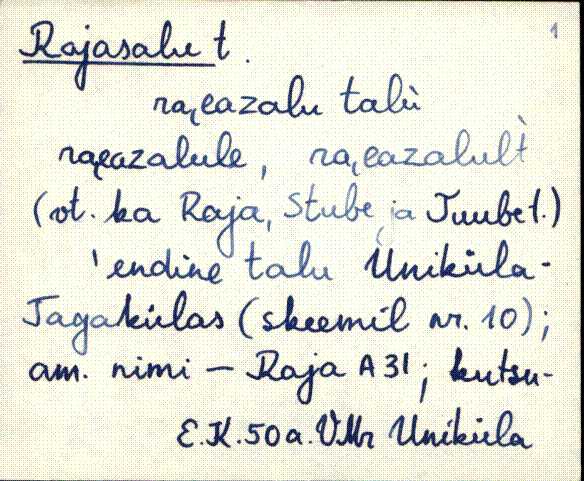 1
Rajasalu t.
ra̮i̯azalu talù
ra̮i̯azalule, ra̮i̯azalult̀
(vt. ka Raja, Stube ja Juubet.)
'endine talu Uniküla-
Jagakülas (skeemil nr. 10);
am. nimi – Raja A31; kutsu-
E.K. 50a. VMr Uniküla